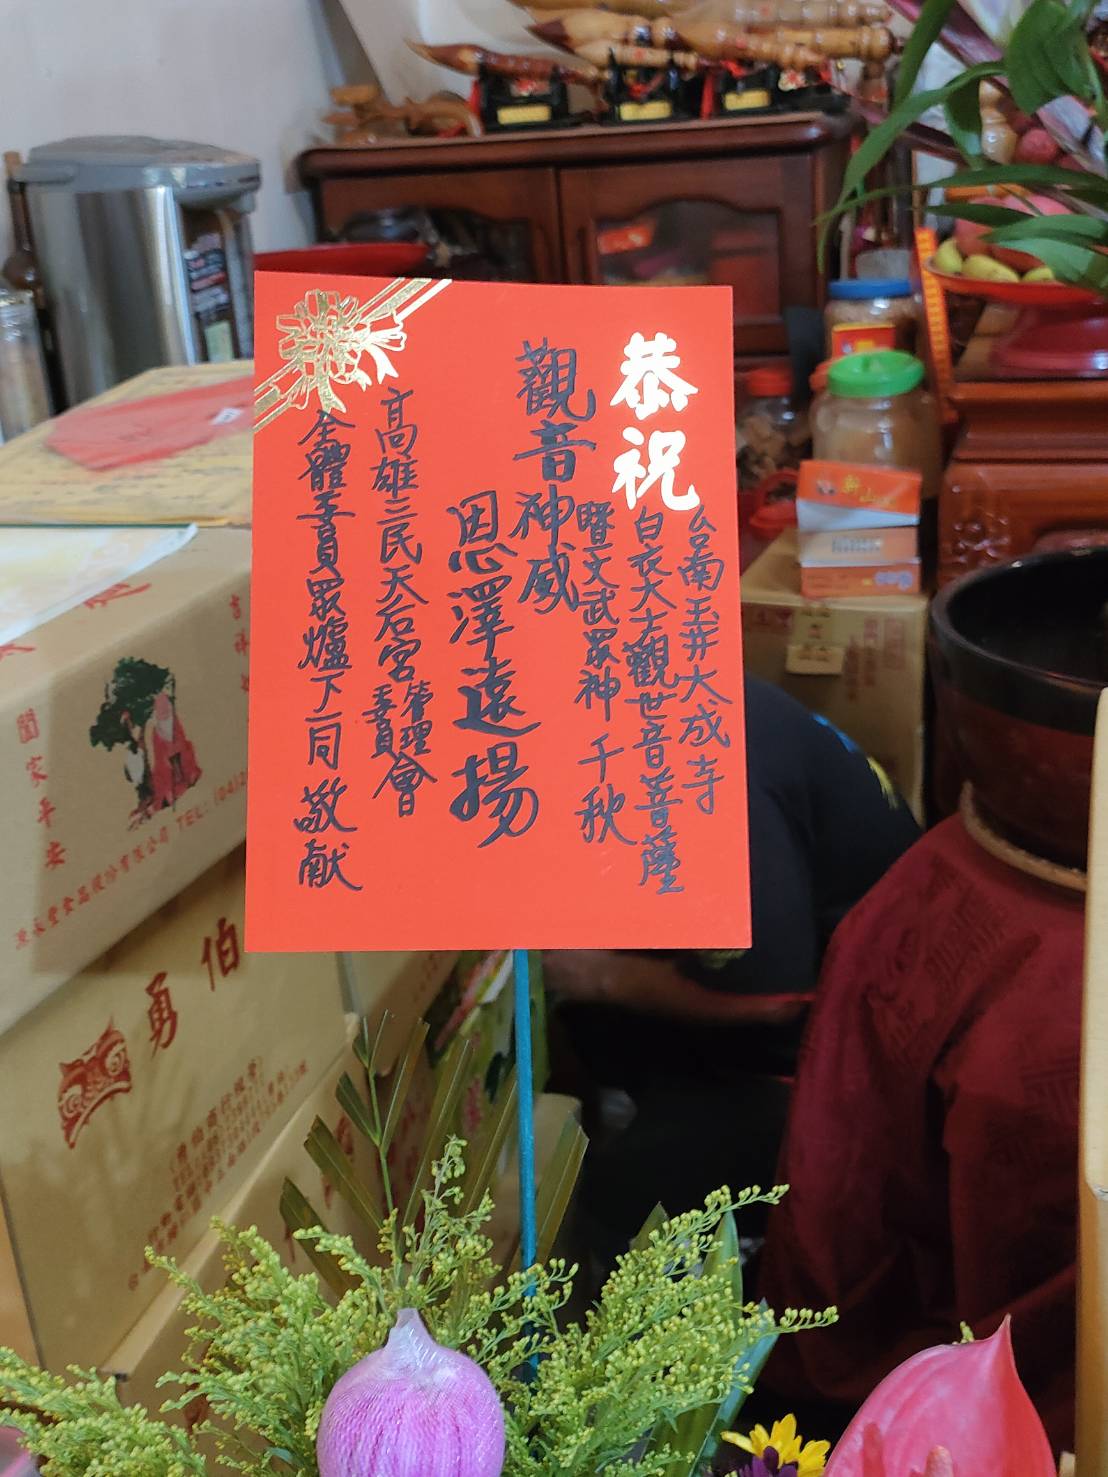 恭祝
台南玉井大成寺
白衣大士觀世音菩薩
暨文武眾神千秋
觀音神威
恩澤遠揚
高雄三民天后宮管理委員會
全體委員眾爐下一同敬献
闔家平安
吉祥
TEL: (04)2
伯勇